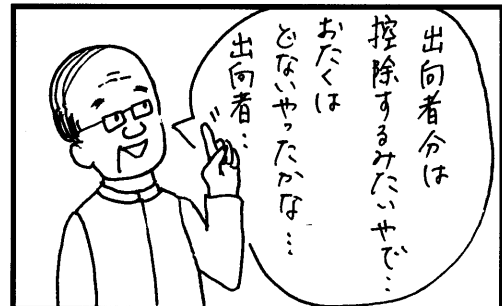 出向者分は
控除するみたいやで…
おたくは
どないやったかな…
出向者…